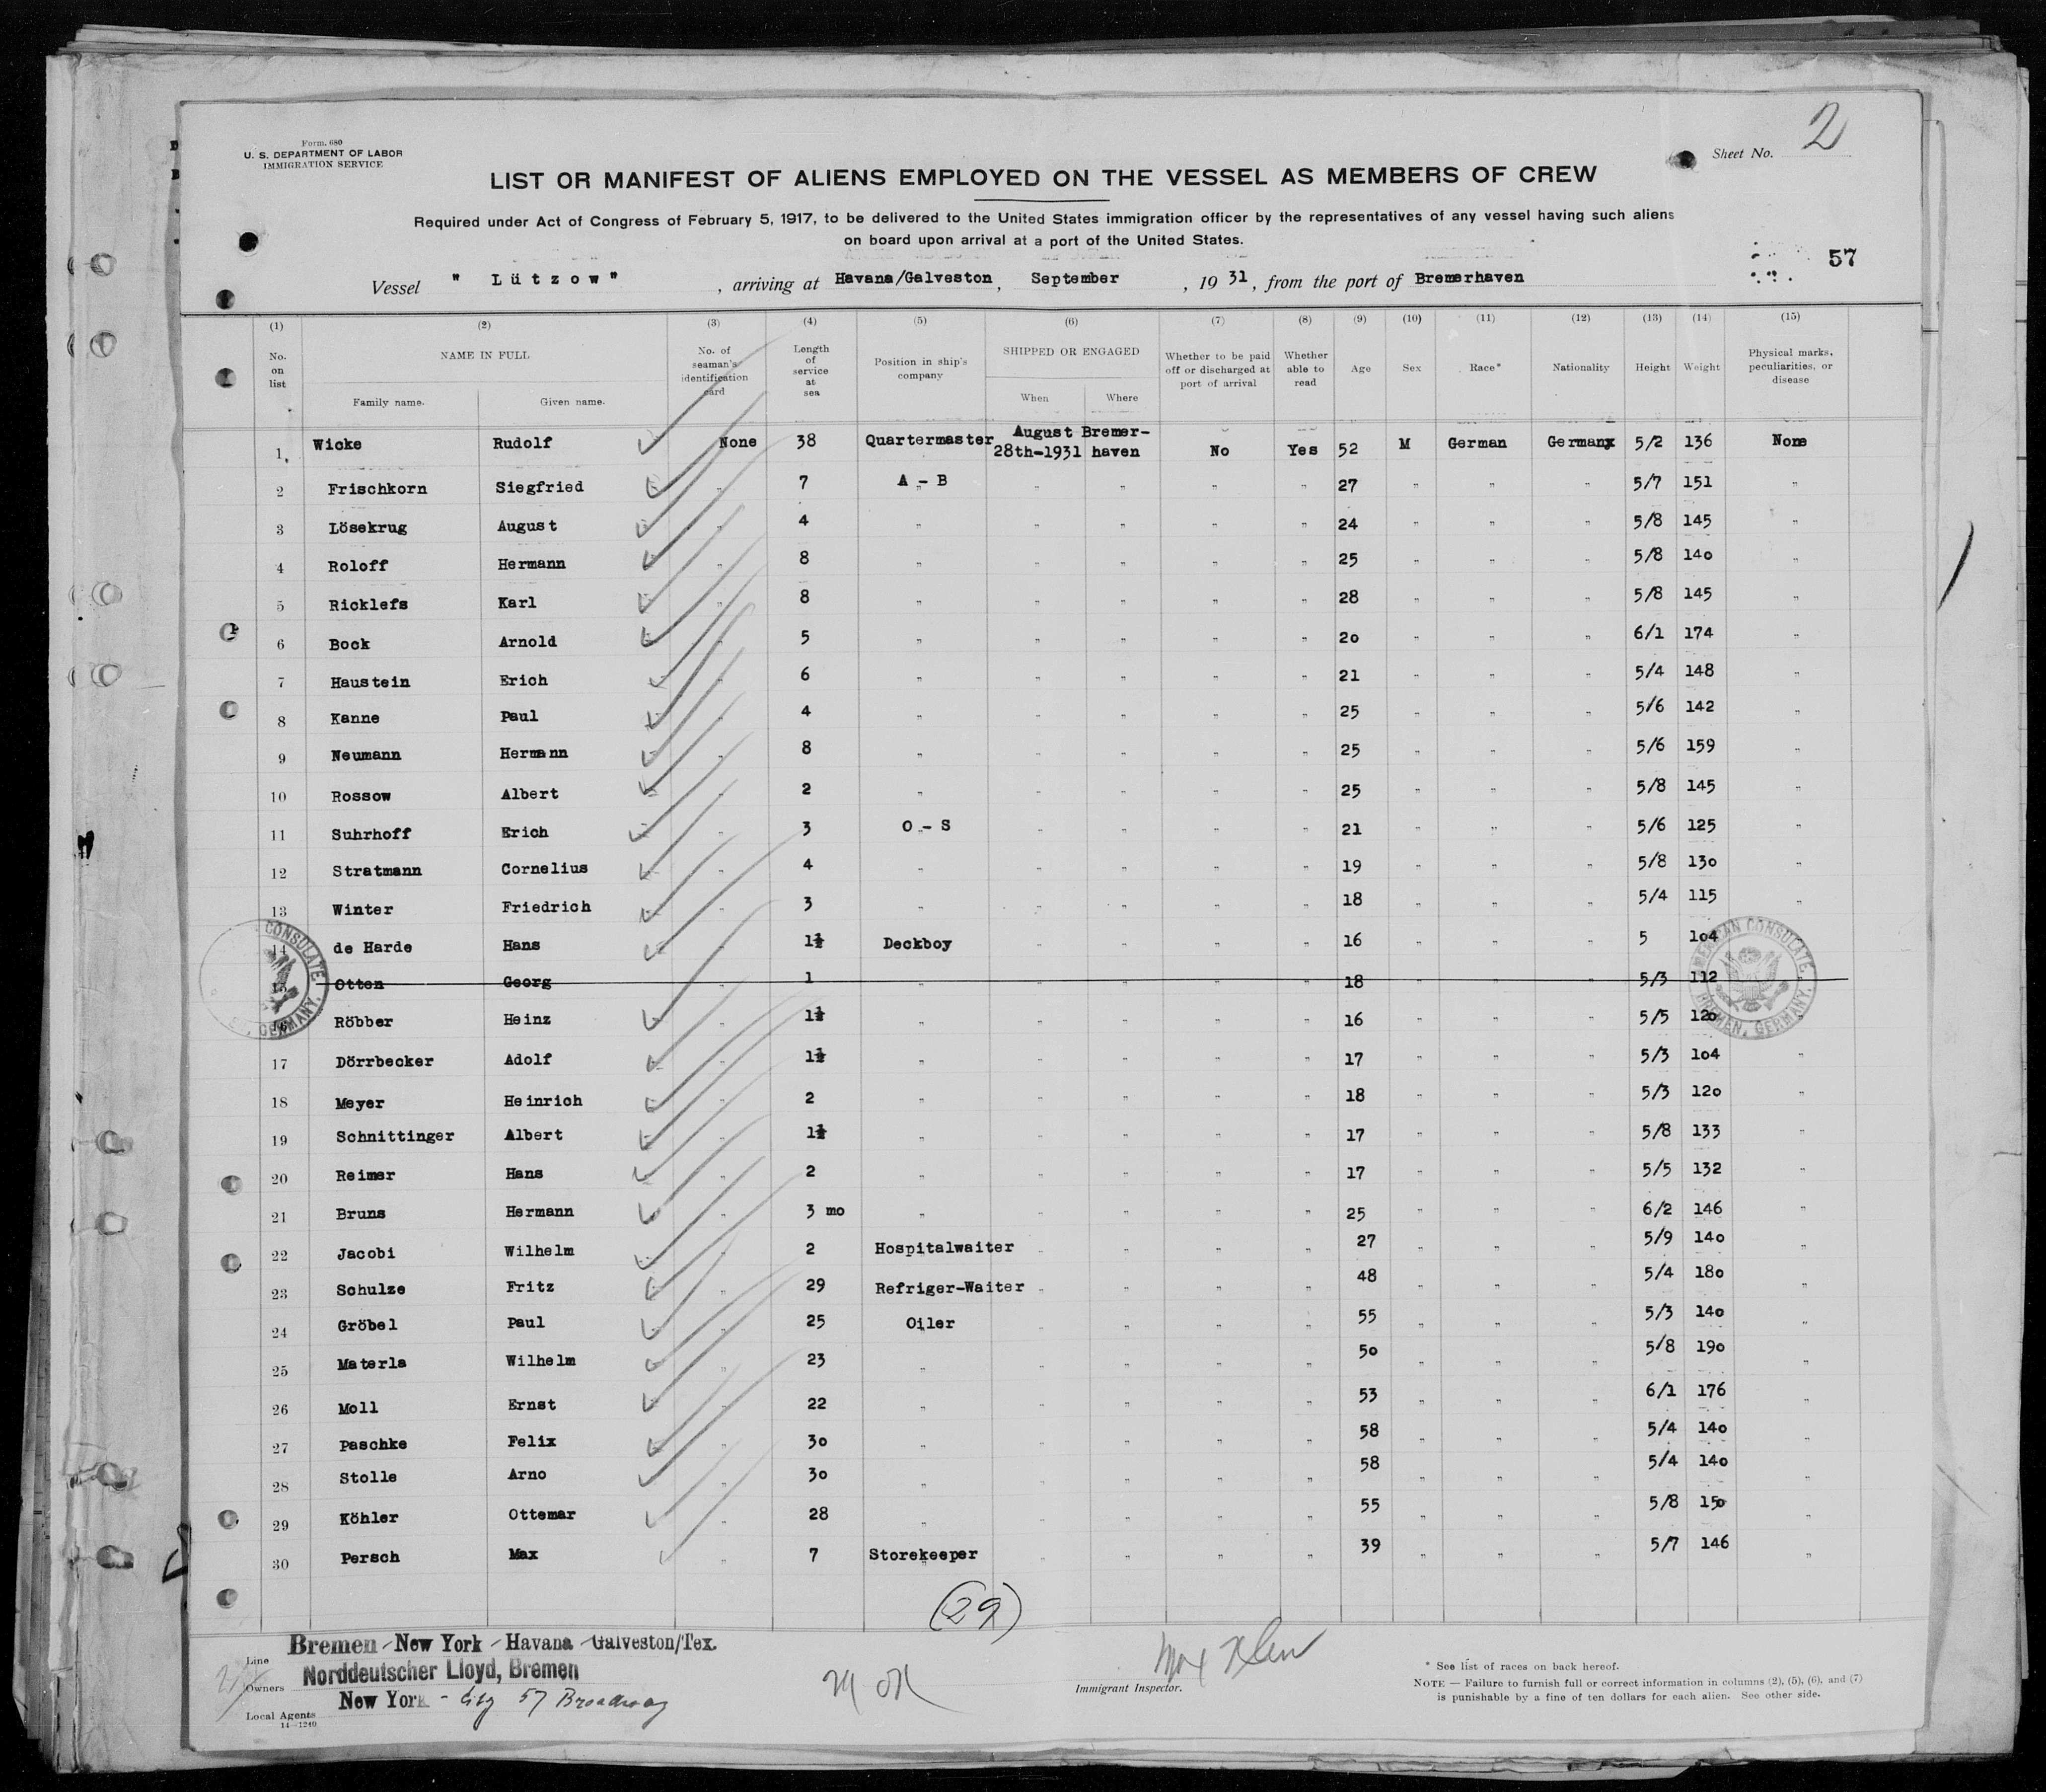 Form 680
U. S. DEPARTMENT OF LABOR
IMMIGRATION SERVICE
Sheet No. 2
LIST OR MANIFEST OF ALIENS EMPLOYED ON THE VESSEL AS MEMBERS OF CREW
Required under Act of Congress of February 5, 1917, to be delivered to the United States immigration officer by the representatives of any vessel having such aliens
on board upon arrival at a port of the United States.
57
Vessel " Lützow" , arriving at Havana/Galveston, September , 19 31, from the port of Bremerhaven
(1) (2) (3) (4) (5) (6) (7) (8) (9) (10) (11) (12) (13) (14) (15)
No. on list NAME IN FULL No. of seaman's identification card Length of service at sea Position in ship's company SHIPPED OR ENGAGED Whether to be paid off or discharged at port of arrival Whether able to read Age Sex Race* Nationality Height Weight Physical marks, peculiarities, or disease
Family name. Given name. When Where
1. Wicke Rudolf None 38 Quartermaster August 28th-1931 Bremer-haven No Yes 52 M German Germanx 5/2 136 None
2 Frischkorn Siegfried " 7 A - B " " " " 27 " " " 5/7 151 "
3 Lösekrug August " 4 " " " " " 24 " " " 5/8 145 "
4 Roloff Hermann " 8 " " " " " 25 " " " 5/8 140 "
5 Ricklefs Karl " 8 " " " " " 28 " " " 5/8 145 "
6 Bock Arnold " 5 " " " " " 20 " " " 6/1 174 "
7 Haustein Erich " 6 " " " " " 21 " " " 5/4 148 "
8 Kanne Paul " 4 " " " " " 25 " " " 5/6 142 "
9 Neumann Hermann " 8 " " " " " 25 " " " 5/6 159 "
10 Rossow Albert " 2 " " " " " 25 " " " 5/8 145 "
11 Suhrhoff Erich " 3 O - S " " " " 21 " " " 5/6 125 "
12 Stratmann Cornelius " 4 " " " " " 19 " " " 5/8 130 "
13 Winter Friedrich " 3 " " " " " 18 " " " 5/4 115 "
14 de Harde Hans " 1½ Deckboy " " " " 16 " " " 5 104
15 Otten Georg " 1 " " " " " 18 " " " 5/3 112
16 Röbber Heinz " 1½ " " " " " 16 " " " 5/5 120 "
17 Dörrbecker Adolf " 1½ " " " " " 17 " " " 5/3 104 "
18 Meyer Heinrich " 2 " " " " " 18 " " " 5/3 120 "
19 Schnittinger Albert " 1½ " " " " " 17 " " " 5/8 133 "
20 Reimer Hans " 2 " " " " " 17 " " " 5/5 132 "
21 Bruns Hermann " 3 mo " " " " " 25 " " " 6/2 146 "
22 Jacobi Wilhelm " 2 Hospitalwaiter " " " " 27 " " " 5/9 140 "
23 Schulze Fritz " 29 Refriger-Waiter " " " " 48 " " " 5/4 180 "
24 Gröbel Paul " 25 Oiler " " " " 55 " " " 5/3 140 "
25 Materla Wilhelm " 23 " " " " " 50 " " " 5/8 190 "
26 Moll Ernst " 22 " " " " " 53 " " " 6/1 176 "
27 Paschke Felix " 30 " " " " " 58 " " " 5/4 140 "
28 Stolle Arno " 30 " " " " " 58 " " " 5/4 140 "
29 Köhler Ottomar " 28 " " " " " 55 " " " 5/8 150 "
30 Persch Max " 7 Storekeeper " " " " 39 " " " 5/7 146 "
AMERICAN CONSULATE
BREMEN, GERMANY.
(29)
Line Bremen-New York-Havana-Galveston/Tex.
Owners Norddeutscher Lloyd, Bremen
Local Agents New York - City 57 Broadway
14-1240
Immigrant Inspector.
* See list of races on back hereof.
NOTE — Failure to furnish full or correct information in columns (2), (5), (6), and (7)
is punishable by a fine of ten dollars for each alien. See other side.